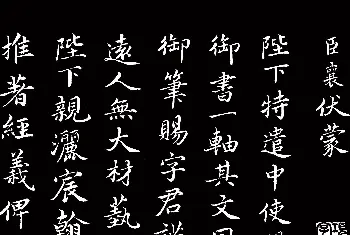 臣襄伏蒙
陛下特遣中使
御書一軸其文曰
御筆賜字君謨
遠人無大材藝
陛下親灑宸翰
推著經義俾